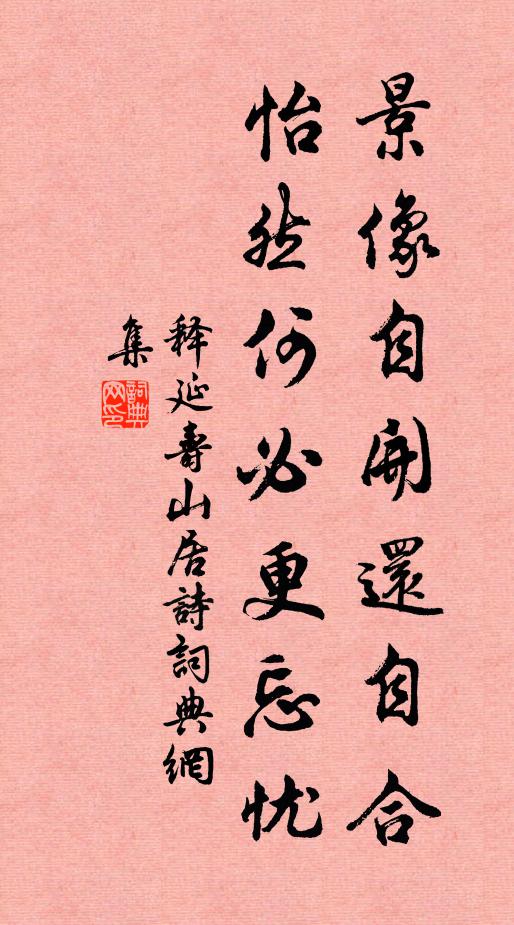 景像自開還自合
怡然何必更忘忧
释延壽山居詩詞典網
集
詞典網印